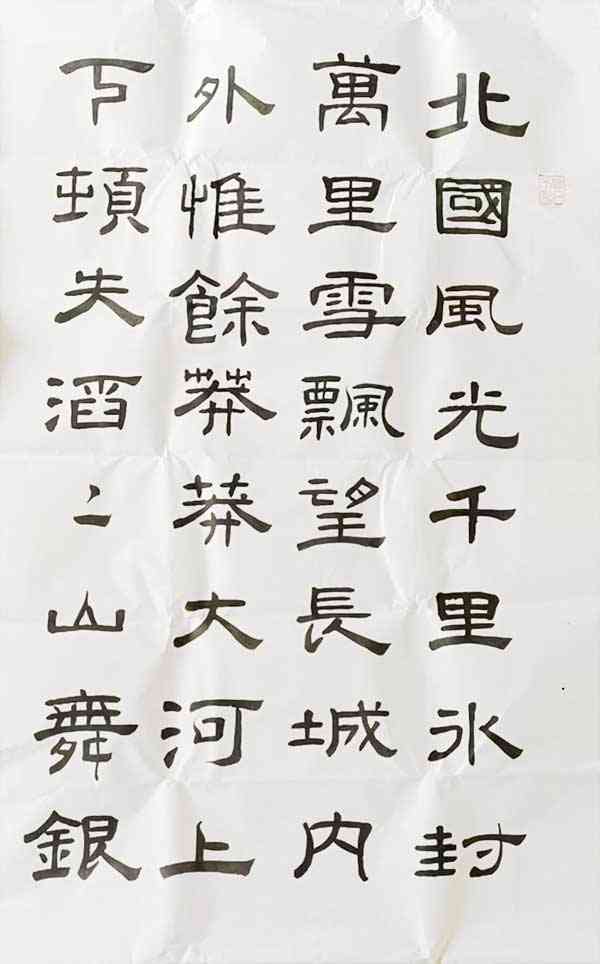 北國風光千里氷封
萬里雪飄望長城内
外惟餘莽莽大河上
下頓失滔〻山舞銀